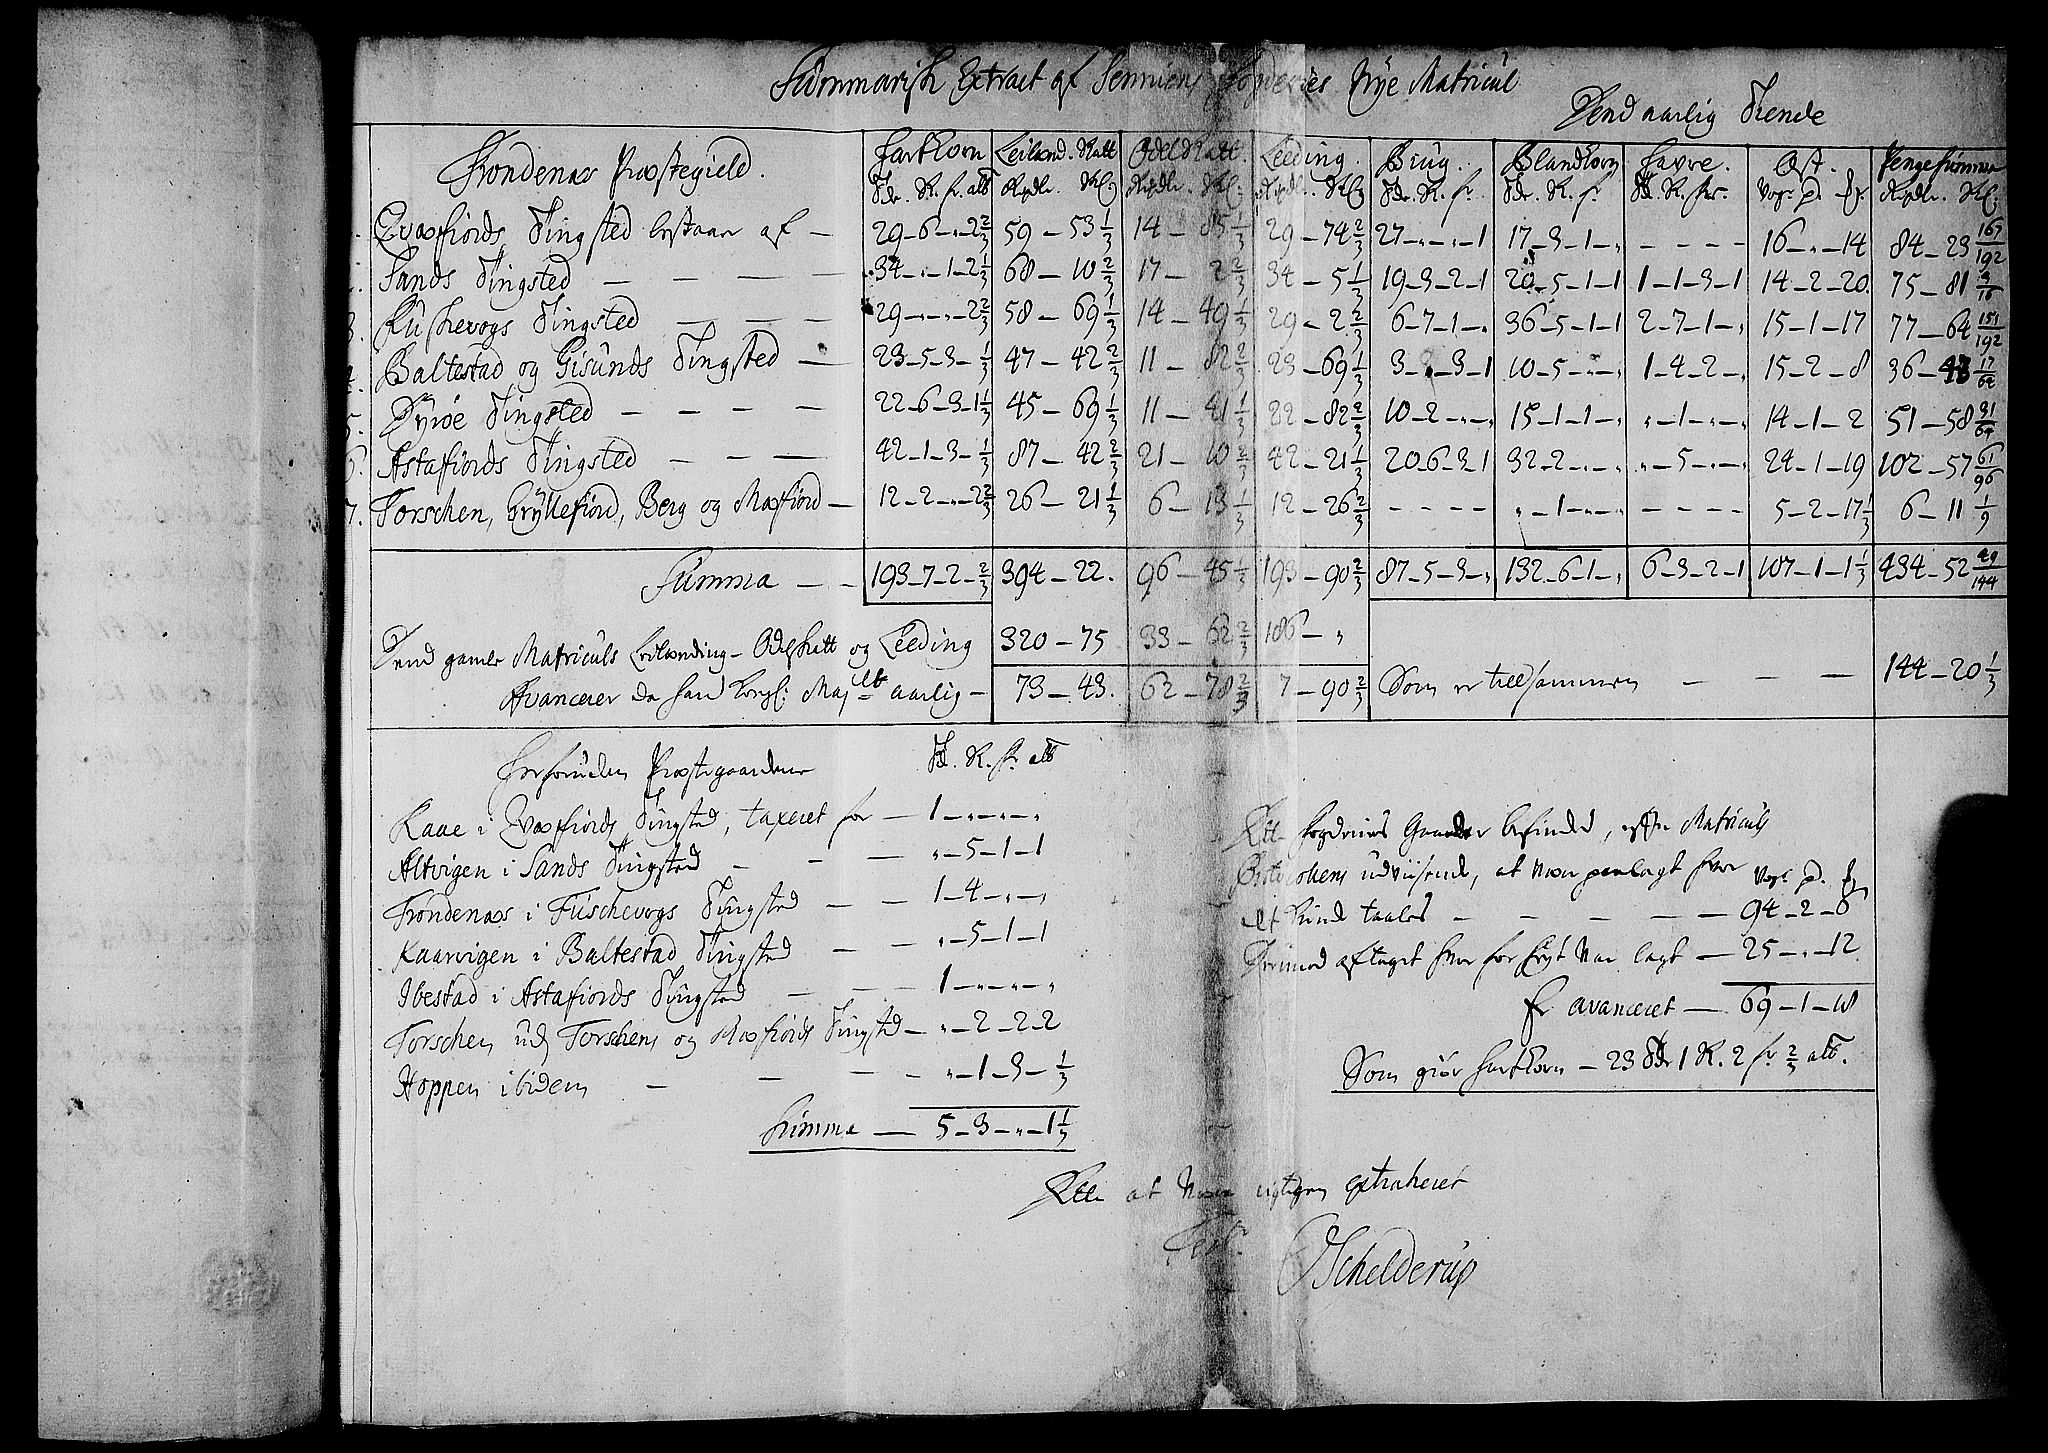 Summarisk Extract af Senniens Fogderies Nye Matricul
Dend aarlig Tiende
Trondenæs Præstegield. Hartkorn Leiland. Skatt OdelSkatt. Leeding. Biug. Blandkorn Havre. Ost. Penge Summa
Tdr. S. fr. alb Rixdlr. Sk: Rixdlr. Sk: Rixdlr. Sk: Tdr. S. fr. Tdr. S. fr. Td. S. fr. Vogr p. Rixdlr. Sk:
Qvæfiords Tingsted bestaaer af — 29-6-"-2 2/3 59-53 1/3 14-85 1/3 29-74 2/3 27-"-"-1 17-3-1-" - - - - 16-"-14 84-23 167/192
2. Sands Tingsted — — — 34-"-1-2 1/3 68-10 2/3 17-2 2/3 34-5 1/3 19-3-2-1 20-5-1-1 1-1-3-1 14-2-20 75-81 9/16
3. Fuschevogs Tingsted — — — 29-"-"-2 2/3 58-69 1/3 14-49 1/3 29-2 2/3 6-7-1-" 36-5-1-1 2-7-1-" 15-1-17 77-64 151/192
4. Baltestad og Gisunds Tingsted — 23-5-3-1/3 47-42 2/3 11-82 2/3 23-69 1/3 3-3-3-1 10-5-"-" 1-4-2-" 15-2-8 36-43 17/64
5. Dyrøe Tingsted — — — — 22-6-3-1 1/3 45-69 1/3 11-41 1/3 22-82 2/3 10-2-"-" 15-1-1-" "-1-"-" 14-1-2 51-58 31/64
6. Astafiords Tingsted — — — 42-1-3-1/3 87-42 2/3 21-10 2/3 42-21 1/3 20-6-3-1 32-2-"-" "-5-"-" 24-1-19 102-57 61/96
7. Torschen, Gryllefiord, Berg og Mæfiord — 12-2-"-2 2/3 26-21 1/3 6-13 1/3 12-26 2/3 - - - - "-1-"-" - - - - 5-2-17 1/3 6-11 1/9
Summa — — 193-7-2-2/3 394-22. 96-45 1/3 193-90 2/3 87-5-3-" 132-6-1-" 6-3-2-1 107-1-1 1/3 434-52 49/144
Dend gamle Matriculs Leilænding- OdelsSkatt og Leeding 320-75 33-62 2/3 186-"
Avancerer da hand Kongl: Maj:tt aarlig — 73-43. 62-78 2/3 7-90 2/3 Som er tilsammen — — — 144-20 1/3
Forforuden Præstegaardene Td. S. fr. alb
Kaae i Qvæfiords Tingsted, taxeret for — 1-"-"-"
Altvigen i Sands Tingsted — — — "-5-1-1
Trondenæs i Fuschevogs Tingsted — — 1-4-"-"
Kaarvigen i Baltestad Tingsted — — "-5-1-1
Ibestad i Astafiords Tingsted — — — 1-"-"-"
Torschen udj Torschens og Mæfiords Tingsted — "-2-2-2
Hoppen ibidem — — — "-1-3-1/3
Summa — 5-3-"-1 1/3
Fogderies Gaarder befindes, efter Matriculs
Protocollens udviisende, at være paalagt hvor Vogr p.
et Kund taales — — — — 94-2-6
Derimod aftaget hvor for høyt var lagt — 25-"-12
Er avanceret — 69-1-18
Som giør Hartkorn — 23 Tdr 1 S. 2 fr. 2/3 alb.
at være rigtigen extraheret
Test.
OSchelderup